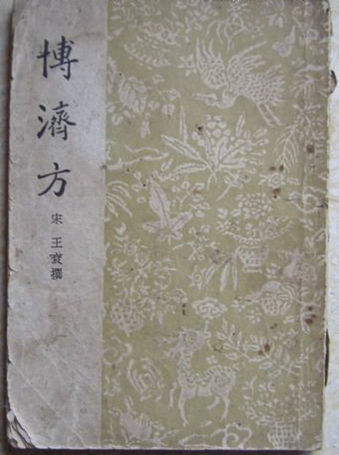 博濟方
宋 王袞撰